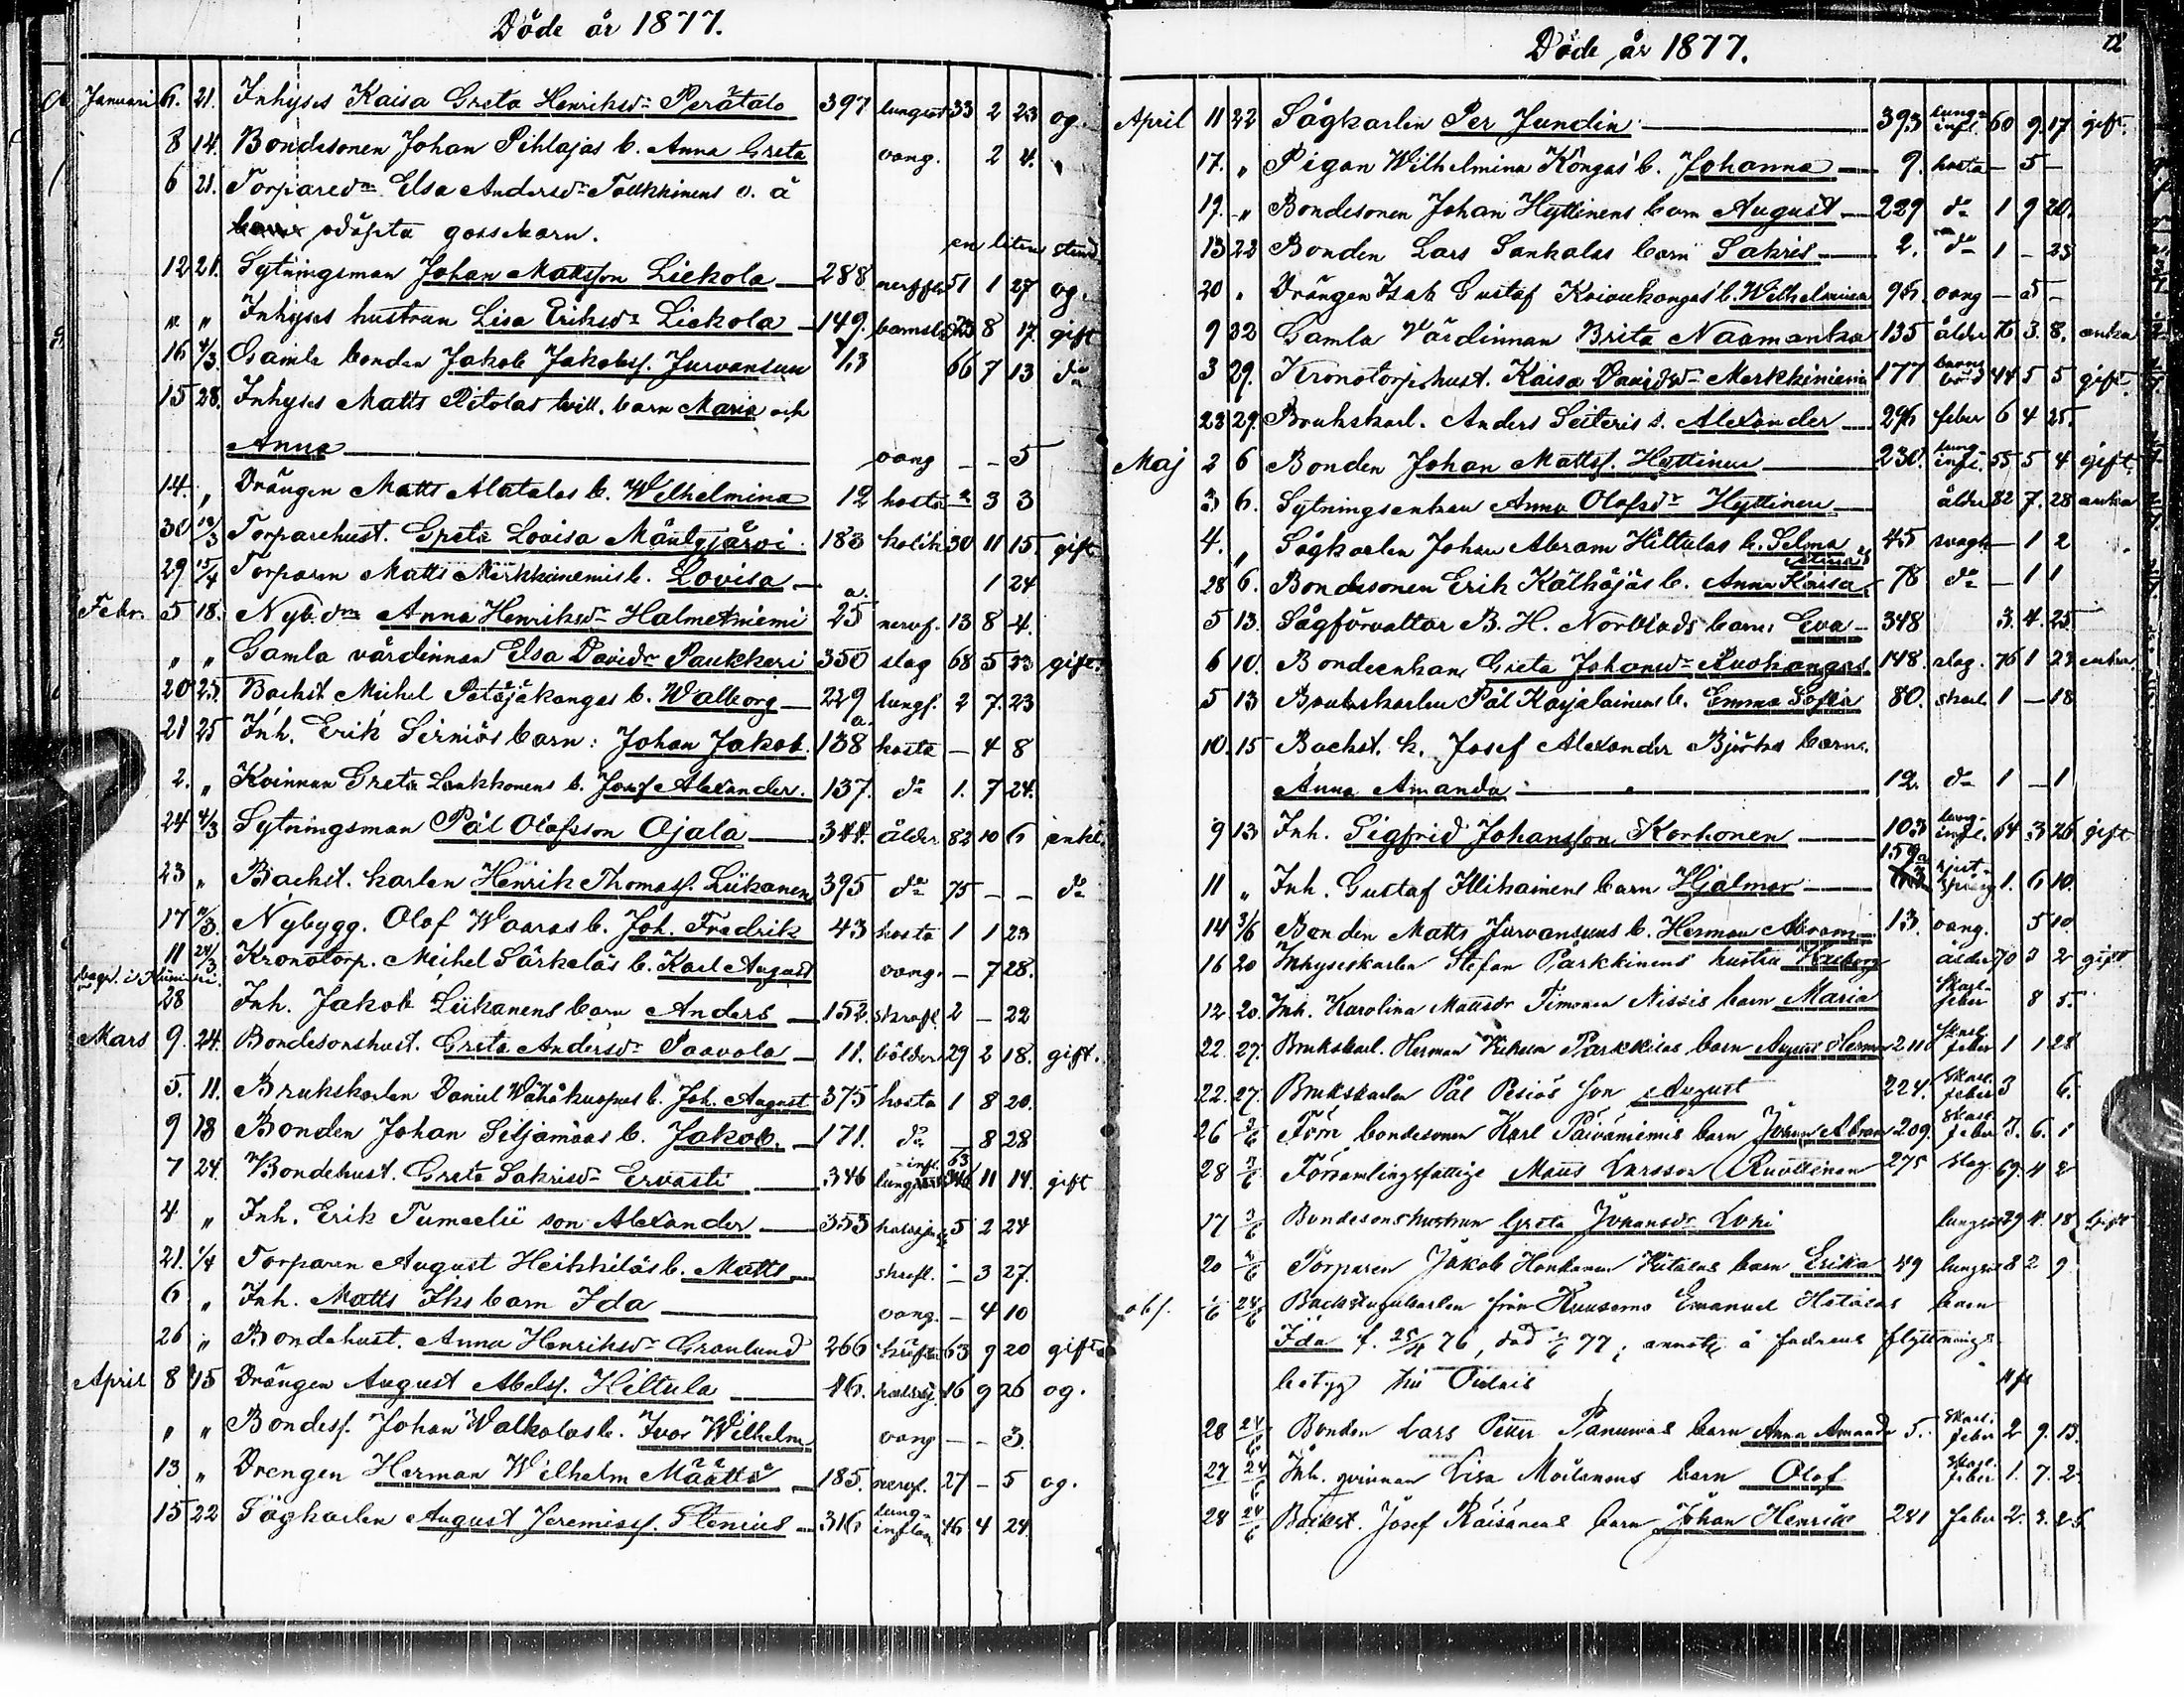 Döde år 1877.
Januari 6. 21. Inhyses Kaisa Greta Henriksdr Perätalo 397 lungsot 33 2 23 og.
8 14. Bondesonen Johan Pihlajas b. Anna Greta oang. 2 4.
6 21. Torparedr Elsa Andersdr o. ä
odöpta gossebarn. en liten stund
12 21. Sytningsman Johan Mattsson Liekola 288 nervfeb 51 1 27 og.
" " Inhyses hustrun Lisa Eriksdr Liekola 149. barnsb 23 8 17. gift
16 4/3 Gamle bonden Jakob Jakobss. Jurvansuu 66 7 13 do
15 28. Inhyses Matts Pitolas tvill. barn Maria och
Anna oang - - 5
14. " Drängen Matts Alatalos b. Wilhelmina 12 hosta - 3 3
30 Torparehust. Greta Lovisa Mäntyjärvi 183 kolik 30 11 15. gift
29 15/4 Torparen Matts b. Lovisa 1 24
Febr. 5 18. Nyb.dr Anna Henriksdr Halmetniemi 25 a. nervf. 13 8 4.
" " Gamla värdinnan Elsa Davidsdr Paukkeri 350 slag 68 5 23 gift.
20 25. Backst. Michel Petäjäkangas b. Walborg 229 lungf. 2 7. 23
21 25 Inh. Erik Sirniös barn: Johan Jakob. 138 a. hosta - 4 8
2. " Kvinnan Greta Lankkonens b. Josef Alexander. 137. do 1. 7 24.
24 4/3 Sytningsman Pål Olofsson Ojala 344. ålder. 82 10 6 enkl.
23 " Backst. karlen Henrik Thomass. Liikanen 395 do 75 - - do
17 Nybygg. Olof Waaras b. Joh. Fredrik 43 hosta 1 1 23
11 24/3 Kronotorp. Michel Särkeläs b. Karl August oang. - 7 28.
28 Inh. Jakob Liikanens barn Anders 152. skrofl. 2 - 22
Mars 9. 24. Bondesonshust. Greta Andersdr Paavola 11. bölder 29 2 18. gift.
5. 11. Brukskarlen Daniel Wähäkuopus b. Joh. August 375 hosta 1 8 20.
9 18 Bonden Johan Siljamäas b. Jakob. 171. do - 8 28
7 24. Bondehust. Greta Sakrisdr Ervasti 346 lunginfl. 63 11 14. gift
4 " Inh. Erik Tumeelii son Alexander 353 halssj. 5 2 24
21. 1/4 Torparen August Heikkiläs b. Matts skrofl. - 3 27.
6 " Inh. Matts Iks barn Ida oang. - 4 10
26 " Bondehust. Anna Henriksdr Granlund 266 63 9 20 gift
April 8 15 Drängen August Abelss. Hiltula 16. halssj. 16 9 26 og.
" " Bondes. Johan Walkolas b. Ivar Wilhelm oang - - 3.
13 " Drengen Herman Wilhelm Määttä 185. nervf. 27 - 5 og.
15 22 Sågkarlen August Jeremiass. Stenius 316 lung-inflam 46 4 24.
Döde år 1877. 12
April 11 22 Sågkarlen Per Jundin 393 lung-infl. 60 9. 17. gift.
17. " Pigan Wilhelmina Köngas' b. Johanna 9. hosta - 5 -
19. " Bondesonen Johan Hyttinens barn August 229 do 1 9 20.
13 22 Bonden Lars Sankalas barn Sakris 2. do 1 - 23
20 " Drängen Isak Gustaf Koivukangas' b. Wilhelmina 96. oang - 5 -
9 22 Gamla Värdinnan Brita Naamanka 135 ålder 76 3. 8. enka
3 29. Kronotorp.hust. Kaisa Davidsdr Merkkiniemi 177 barnsbörd 44 5 5 gift.
23 29. Brukskarl. Anders Seiteris s. Alexander 296 feber 6 4 25.
Maj 2 6 Bonden Johan Mattss. Hyttinen 230. lung-infl. 55 5 4 gift.
3 6. Sytningsenkan Anna Olofsdr Hyttinen ålder 82 7. 28 enka
4. " Sågkarlen Johan Abram Hiltulas b. Selma 45 svagh - 1 2
28 6. Bondesonen Erik Kälkäjäs b. Anna Kaisa 78 do - 1 1
5 13. Sågförvaltar B. H. Norblads barn, Eva 348 3. 4. 25.
6 10. Bondeenkan Greta Johansdr Auhokangas 148. slag. 76 1 23 enka
5 13 Brukskarlen Pål Karjalainens b. Emma Sofia 80. skarl 1 - 18
10. 15 Backst. k. Josef Alexander Björks barn.
Anna Amanda 12. do 1 - 1
9 13 Inh. Sigfrid Johansson Korhonen 103 lung-infl. 64 3 26 gift
11 " Inh. Gustaf Illikainens barn Hjalmar 159a 1. 6 10.
14 3/6 Bonden Matts Jurvansuus b. Herman Abram 13. oang. 5 10.
16 20 Inhyseskarlen Stefan Parkkinens hustru ålder 70 3 2 gift
12 20. Inh. Karolina Mattsdr Timonen Nissis barn Maria Skarl-feber 8 5.
22. 27. Brukskarl. Herman Wilhelm Parkkilas barn August Herman 211 skarl-feber 1 1 28
22. 27. Brukskarlen Pål Pesiös son August 224. skarl. feber 3 6.
26 3/6 Förr bondesonen Karl Päiväniemis barn Johan Abram 209. skarl feber 3. 6. 1
28 3/6 Församlingsfattige Matts Larsson Ruottinen 275 slag 69. 4 2
17 3/6 Bondesonshustrun Greta Johansdr Lohi lungsot 29 4. 18 Gift
20 3/6 Torparen Jakob Honkanen barn Erika 49 lungsot 8 2 9
abf. 1/6 24/6 Backstugukarlen från Kuusamo Emanuel Hotalas barn
Ida f. 25/4 76, död 1/6 77; å fadrens flyttnings-
betyg till
28 24/6 Bonden Lars Petter Panumas barn Anna Amanda 5. Skarl. feber 2 9. 13.
27 24/6 Inh. qvinnan Lisa Moilanens barn Olof Skarl. feber 1. 7. 2.
28 24/6 Backst. Josef Räisänens barn Johan Henrik 281 feber 2. 3. 25.